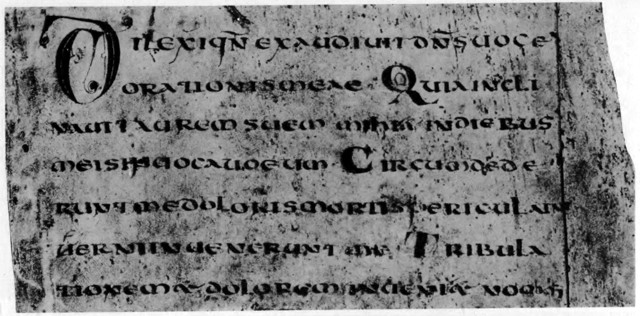 Dilexi qn exaudiuit dns uoce
orationis meae Quia incli
nauit aurem suem mihi in diebus
meis inuocauo eum Circumdede
runt me doloris mortis pericula in
uerni inuenerunt me Tribula
tionem & dolorem inueni &